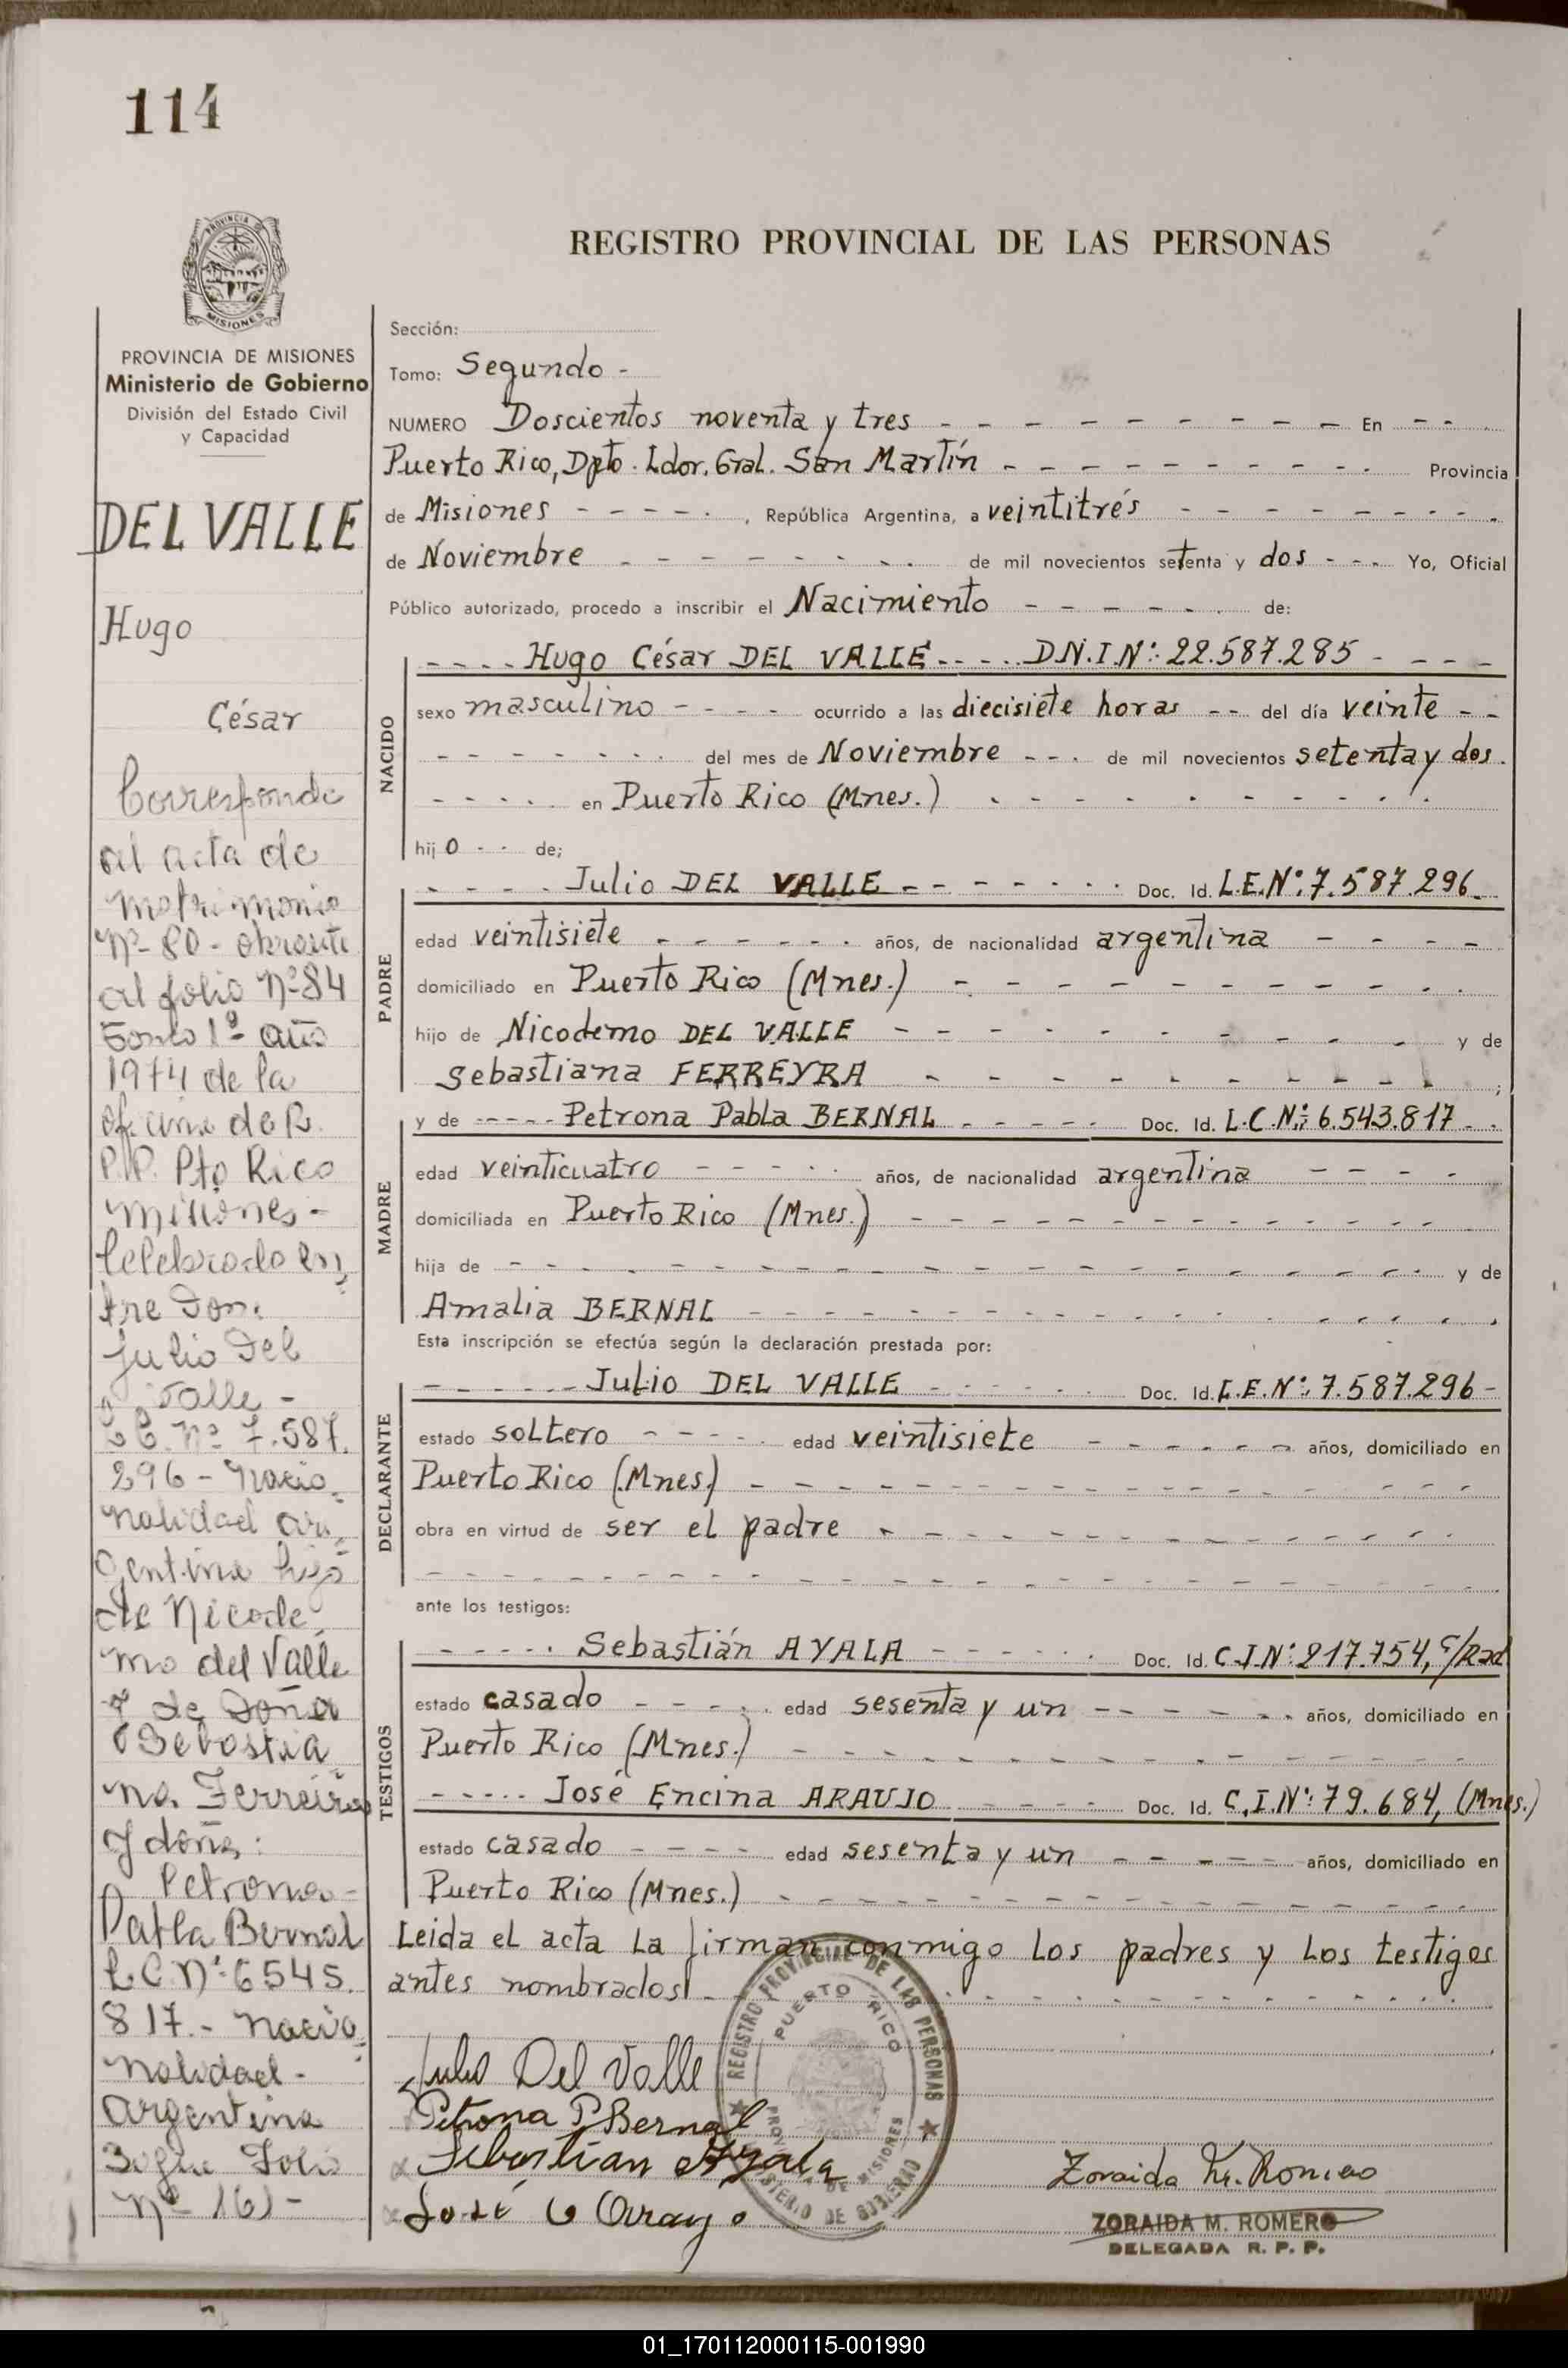 114
PROVINCIA DE
MISIONES
PROVINCIA DE MISIONES
Ministerio de Gobierno
División del Estado Civil
y Capacidad
DEL VALLE
Hugo
César
Corresponde
al acta de
matrimonio
Nº 80 - obrante
al folio Nº 84
Tomo 1º año
1974 de la
oficina de R.
P.P. Pto Rico
misiones -
Celebrado en
tre Don:
Julio Del
Valle -
Nº 7.587.
296 - nacio
nalidad ar
gentina hijo
de Nicode
mo del Valle
y de Doña
Sebastia
na Ferreira
y doña:
Petrona -
Pabla Bernal
L.C. Nº 6545.
817.- nacio
nalidad -
argentina
Sigue Folio
Nº 161 -
REGISTRO PROVINCIAL DE LAS PERSONAS
Sección:
Tomo: Segundo -
NUMERO Doscientos noventa y tres - - - - - - - - - En - - .
Puerto Rico, Dpto. Ldor. Gral. San Martín - - - - - - - - - Provincia
de Misiones - - - - . , República Argentina, a veintitrés - - - - - - - - -
de Noviembre - - - - - - - de mil novecientos setenta y dos - - - Yo, Oficial
Público autorizado, procedo a inscribir el Nacimiento - - - - - . de:
- - - - Hugo César DEL VALLE - - - - - D.N.I.Nº: 22.587.285 - - - -
NACIDO
sexo masculino - - - - ocurrido a las diecisiete horas - - del día veinte - -
- - - - - - - del mes de Noviembre - - . de mil novecientos setenta y dos.
- - - - - en Puerto Rico (Mnes.) - - - - - - - - - -
hijo - - de;
- - - - Julio DEL VALLE - - - - - - - Doc. Id. L.E.Nº: 7.587.296
PADRE
edad veintisiete - - - - - - años, de nacionalidad argentina - - - -
domiciliado en Puerto Rico (Mnes.) - - - - - - - - - - -
hijo de Nicodemo DEL VALLE - - - - - - - - - y de
Sebastiana FERREYRA - - - - - - - - - ;
y de - - - - - Petrona Pabla BERNAL - - - - - Doc. Id. L.C.Nº: 6.543.817 - -
MADRE
edad veinticuatro - - - - - años, de nacionalidad argentina - - - -
domiciliada en Puerto Rico (Mnes.) - - - - - - - - - - - -
hija de - - - - - - - - - - - - - - - - - y de
Amalia BERNAL - - - - - - - - - - - - - -
Esta inscripción se efectúa según la declaración prestada por:
- - - - - - Julio DEL VALLE - - - - - - Doc. Id. L.E.Nº: 7.587.296 -
DECLARANTE
estado soltero - - - - - edad veintisiete - - - - - - años, domiciliado en
Puerto Rico (Mnes.) - - - - - - - - - - - - - - -
obra en virtud de ser el padre - - - - - - - - - - - - -
- - - - - - - - - - - - - - - - - - - -
ante los testigos:
- - - - - Sebastián AYALA - - - - - Doc. Id. C.I.Nº: 217.754, c/Rad
TESTIGOS
estado casado - - - - - edad sesenta y un - - - - - - años, domiciliado en
Puerto Rico (Mnes.) - - - - - - - - - - - - - -
- - - - - José Encina ARAUJO - - - - - Doc. Id. C.I.Nº: 79.684, (Mnes.)
estado casado - - - - edad sesenta y un - - - - - años, domiciliado en
Puerto Rico (Mnes.) - - - - - - - - - - - - - -
Leida el acta la firman conmigo los padres y los testigos
antes nombrados. - - - - - - - - - - - -
REGISTRO PROVINCIAL DE LAS PERSONAS
PUERTO RICO
PROVINCIA DE MISIONES
MINISTERIO DE GOBIERNO
Julio Del Valle
Petrona P Bernal
Sebastian Ayala
José E Araujo
Zoraida M. Romero
ZORAIDA M. ROMERO
DELEGADA R. P. P.
01_170112000115-001990